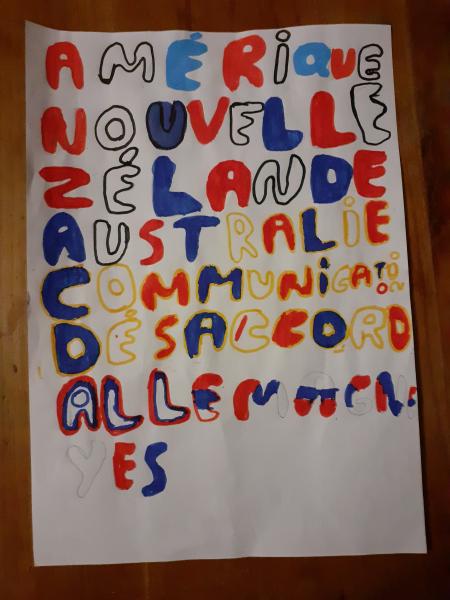 AMÉRiQUE
NOUVELLE
ZÉLANDE
AUSTRALiE
COMMUNiCATiON
DÉSACCORD
ALLEMAGN
YES